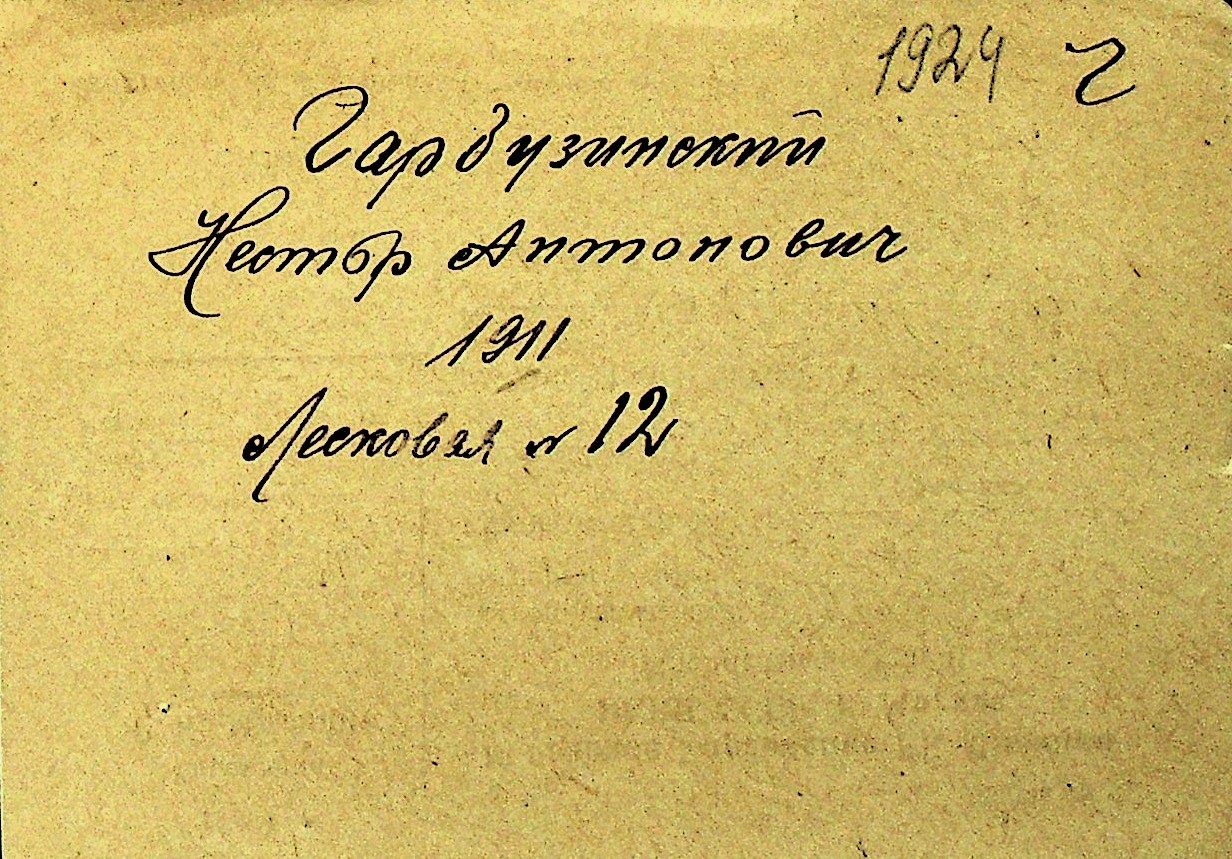 1924 Г
Гарбузинский
Нестор Антонович
1911
Лесковая № 12